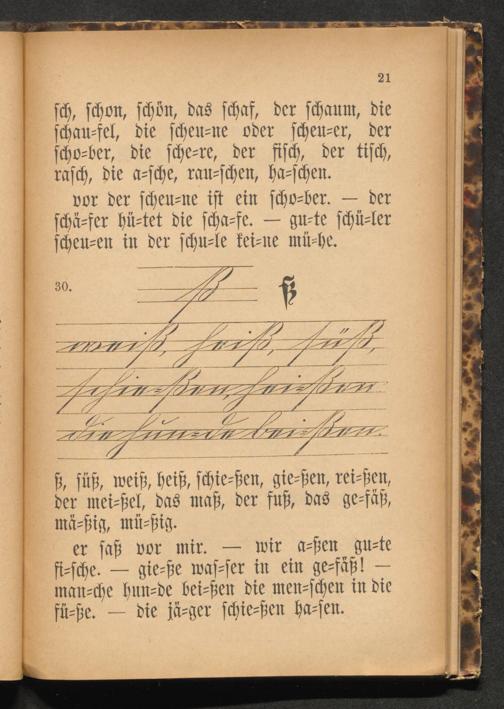 21
ſch, ſchon, ſchön, das ſchaf, der ſchaum, die
ſchau⸗fel, die ſcheu⸗ne oder ſcheu⸗er, der
ſcho⸗ber, die ſche⸗re, der fiſch, der tiſch,
raſch, die a⸗ſche, rau⸗ſchen, ha⸗ſchen.
vor der ſcheu⸗ne iſt ein ſcho⸗ber. — der
ſchä⸗fer hü⸗tet die ſcha⸗fe. — gu⸗te ſchü⸗ler
ſcheu⸗en in der ſchu⸗le kei⸗ne mü⸗he.
30. ß ß
weiß, heiß, ſüß,
ſchie⸗ßen, hei⸗ßen
die hun⸗de bei⸗ßen.
ß, ſüß, weiß, heiß, ſchie⸗ßen, gie⸗ßen, rei⸗ßen,
der mei⸗ßel, das maß, der fuß, das ge⸗fäß,
mä⸗ßig, mü⸗ßig.
er ſaß vor mir. — wir a⸗ßen gu⸗te
fi⸗ſche. — gie⸗ße waſ⸗ſer in ein ge⸗fäß! —
man⸗che hun⸗de bei⸗ßen die men⸗ſchen in die
fü⸗ße. — die jä⸗ger ſchie⸗ßen ha⸗ſen.